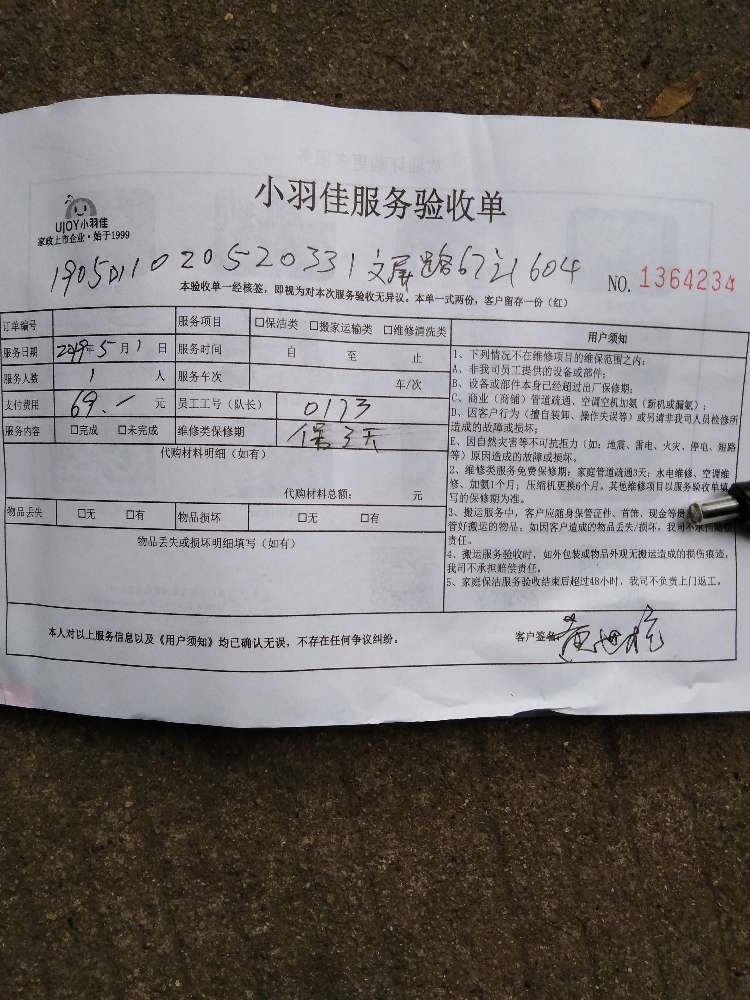 小羽佳服务验收单
UJOY小羽佳
家政上市企业·始于1999
文屏路67-1 604
NO. 1364234
本验收单一经核签,即视为对本次服务验收无异议。本单一式两份,客户留存一份(红)
订单编号 服务项目 □保洁类 □搬家运输类 □维修清洗类
服务日期 2019年5月1日 服务时间 自 至 止
服务人数 1 人 服务车次 车/次
支付费用 69.- 元 员工工号(队长) 0173
服务内容 □完成 □未完成 维修类保修期 保3天
代购材料明细(如有)
代购材料总额: 元
物品丢失 □无 □有 物品损坏 □无 □有
物品丢失或损坏明细填写(如有)
用户须知
1、下列情况不在维修项目的维保范围之内:
A、非我司员工提供的设备或部件;
B、设备或部件本身已经超过出厂保修期;
C、商业(商铺)管道疏通、空调空机加氨(新机或漏氨);
D、因客户行为(擅自装卸、操作失误等)或另请非我司人员检修所
造成的故障或损坏;
E、因自然灾害等不可抗拒力(如:地震、雷电、火灾、停电、短路
等)原因造成的故障或损坏。
2、维修类服务免费保修期:家庭管道疏通3天;水电维修、空调维
修、加氨1个月;压缩机更换6个月。其他维修项目以服务验收单填
写的保修期为准。
3、搬运服务中,客户应随身保管证件、首饰、现金等贵
管好搬运的物品;如因客户造成的物品丢失/损坏,我司不承担赔偿
责任。
4、搬运服务验收时,如外包装或物品外观无搬运造成的损伤痕迹,
我司不承担赔偿责任。
5、家庭保洁服务验收结束后超过48小时,我司不负责上门返工。
本人对以上服务信息以及《用户须知》均已确认无误,不存在任何争议纠纷。 客户签名